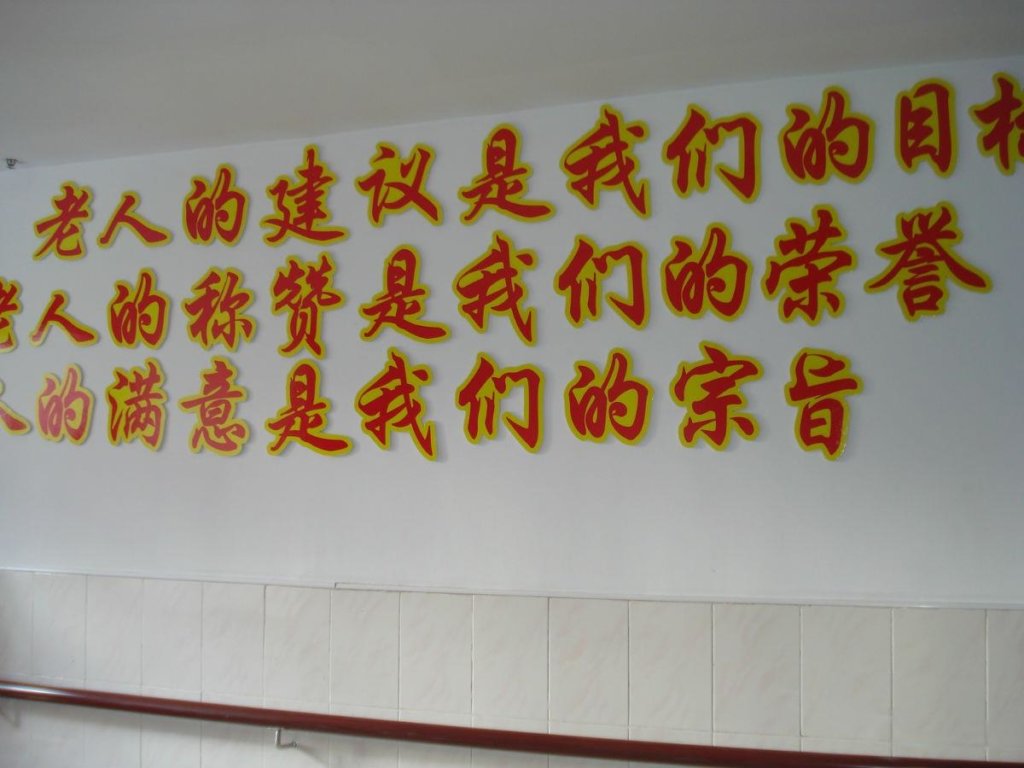 老人的建议是我们的目标
老人的称赞是我们的荣誉
人的满意是我们的宗旨